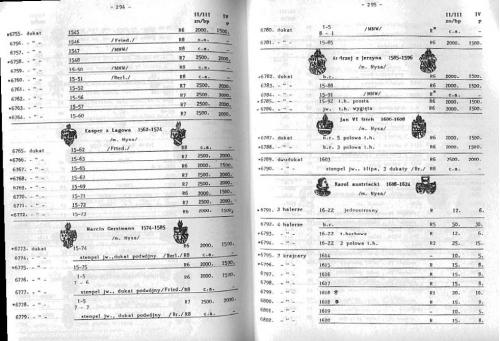 - 294 -
II/III IV
zn/bp P
*6755. dukat 1545 R6 2000. 1500.
6756. - " - /Fried./ R8 c.a. -
6757. - " - 1547 /MNW/ R8 c.a. -
1548 R7 2500. 2000.
15-50 /MNW/ R8 c.a. -
15-51 /Berl./ R8 c.a. -
15-52 R7 2500. 2000.
15-56 R7 2500. 2000.
15-57 R7 2500. 2000.
6764. - " - 15-60 R7 2500. 2000.
Kasper z Łagowa 1562-1574
/m. Nysa/
6765. dukat 15-62 /Fried./ R8 c.a. -
6766. - " - 15-63 R7 2500. 2000.
6767. - " - 15-65 R7 2500. 2000.
6768. - " - 15-67 R7 2500. 2000.
15-69 R7 2500. 2000.
15-71 R7 2500. 2000.
6771. - " - 15-72 R6 2000. 1500.
*6772. - " - 15-73 R6 2000. 1500.
Marcin Gerstmann 1574-1585
/m. Nysa/
*6773. dukat 15-74 R6 2000. 1500.
6774. - " - stempel jw., dukat podwójny /Berl./ R8 c.a. -
6775. - " - 15-75 R6 2000. 1500.
1-5
7 - 6 R6 2000. 1500.
6777. - " - stempel jw., dukat podwójny/Fried./ R8 c.a. -
1-5
7 - 7 R7 2500. 2000.
6779. - " - stempel jw., dukat podwójny /Br./ R8 c.a. -
- 295 -
II/III IV
zn/bp P
6780. dukat 1-5
8 - 1 /MNW/ R* c.a. -
6781. - " - 15-85 R6 2000. 1500.
Andrzej z Jerzyna 1585-1596
/m. Nysa/
*6782. dukat b.r. R6 2000. 1500.
15-88 R6 2000. 1500.
15-91 /MNW/ R* c.a. -
15-92 t.h. prosta R6 2000. 1500.
*6786. - " - jw. t.h. wygięta R6 2000. 1500.
Jan VI Sitsch 1600-1608
/m. Nysa/
*6787. dukat b.r. 5 polowa t.h. R6 2000. 1500.
*6788. - " - b.r. 3 polowa t.h. R6 2000. 1500.
*6789. dwudukat 1603 R6 2500. 2000.
*6790. - " - stempel jw., klipa, 2 dukaty /Br./ R8 c.a. -
Karol austriacki 1608-1624
/m. Nysa/
*6791. 3 halerze 16-22 jednostronny R 12. 6.
*6792. 4 halerze b.r. R5 50. 30.
*6793. - " - 16-22 t.herbowa R 12. 6.
*6794. - " - 16-22 2 polowa t.h. R2 25. 15.
*6795. 3 krajcary 1614 - 10. 5.
*6796. - " - 1615 R 15. 8.
6797. - " - 1616 R 15. 8.
6798. - " - 1617 R 15. 8.
6799. - " - 1618 R1 20. 10.
6800. - " - 1618 R 15. 9.
6801. - " - 1619 - 10. 5.
6802. - " - 1620 R 15. 8.